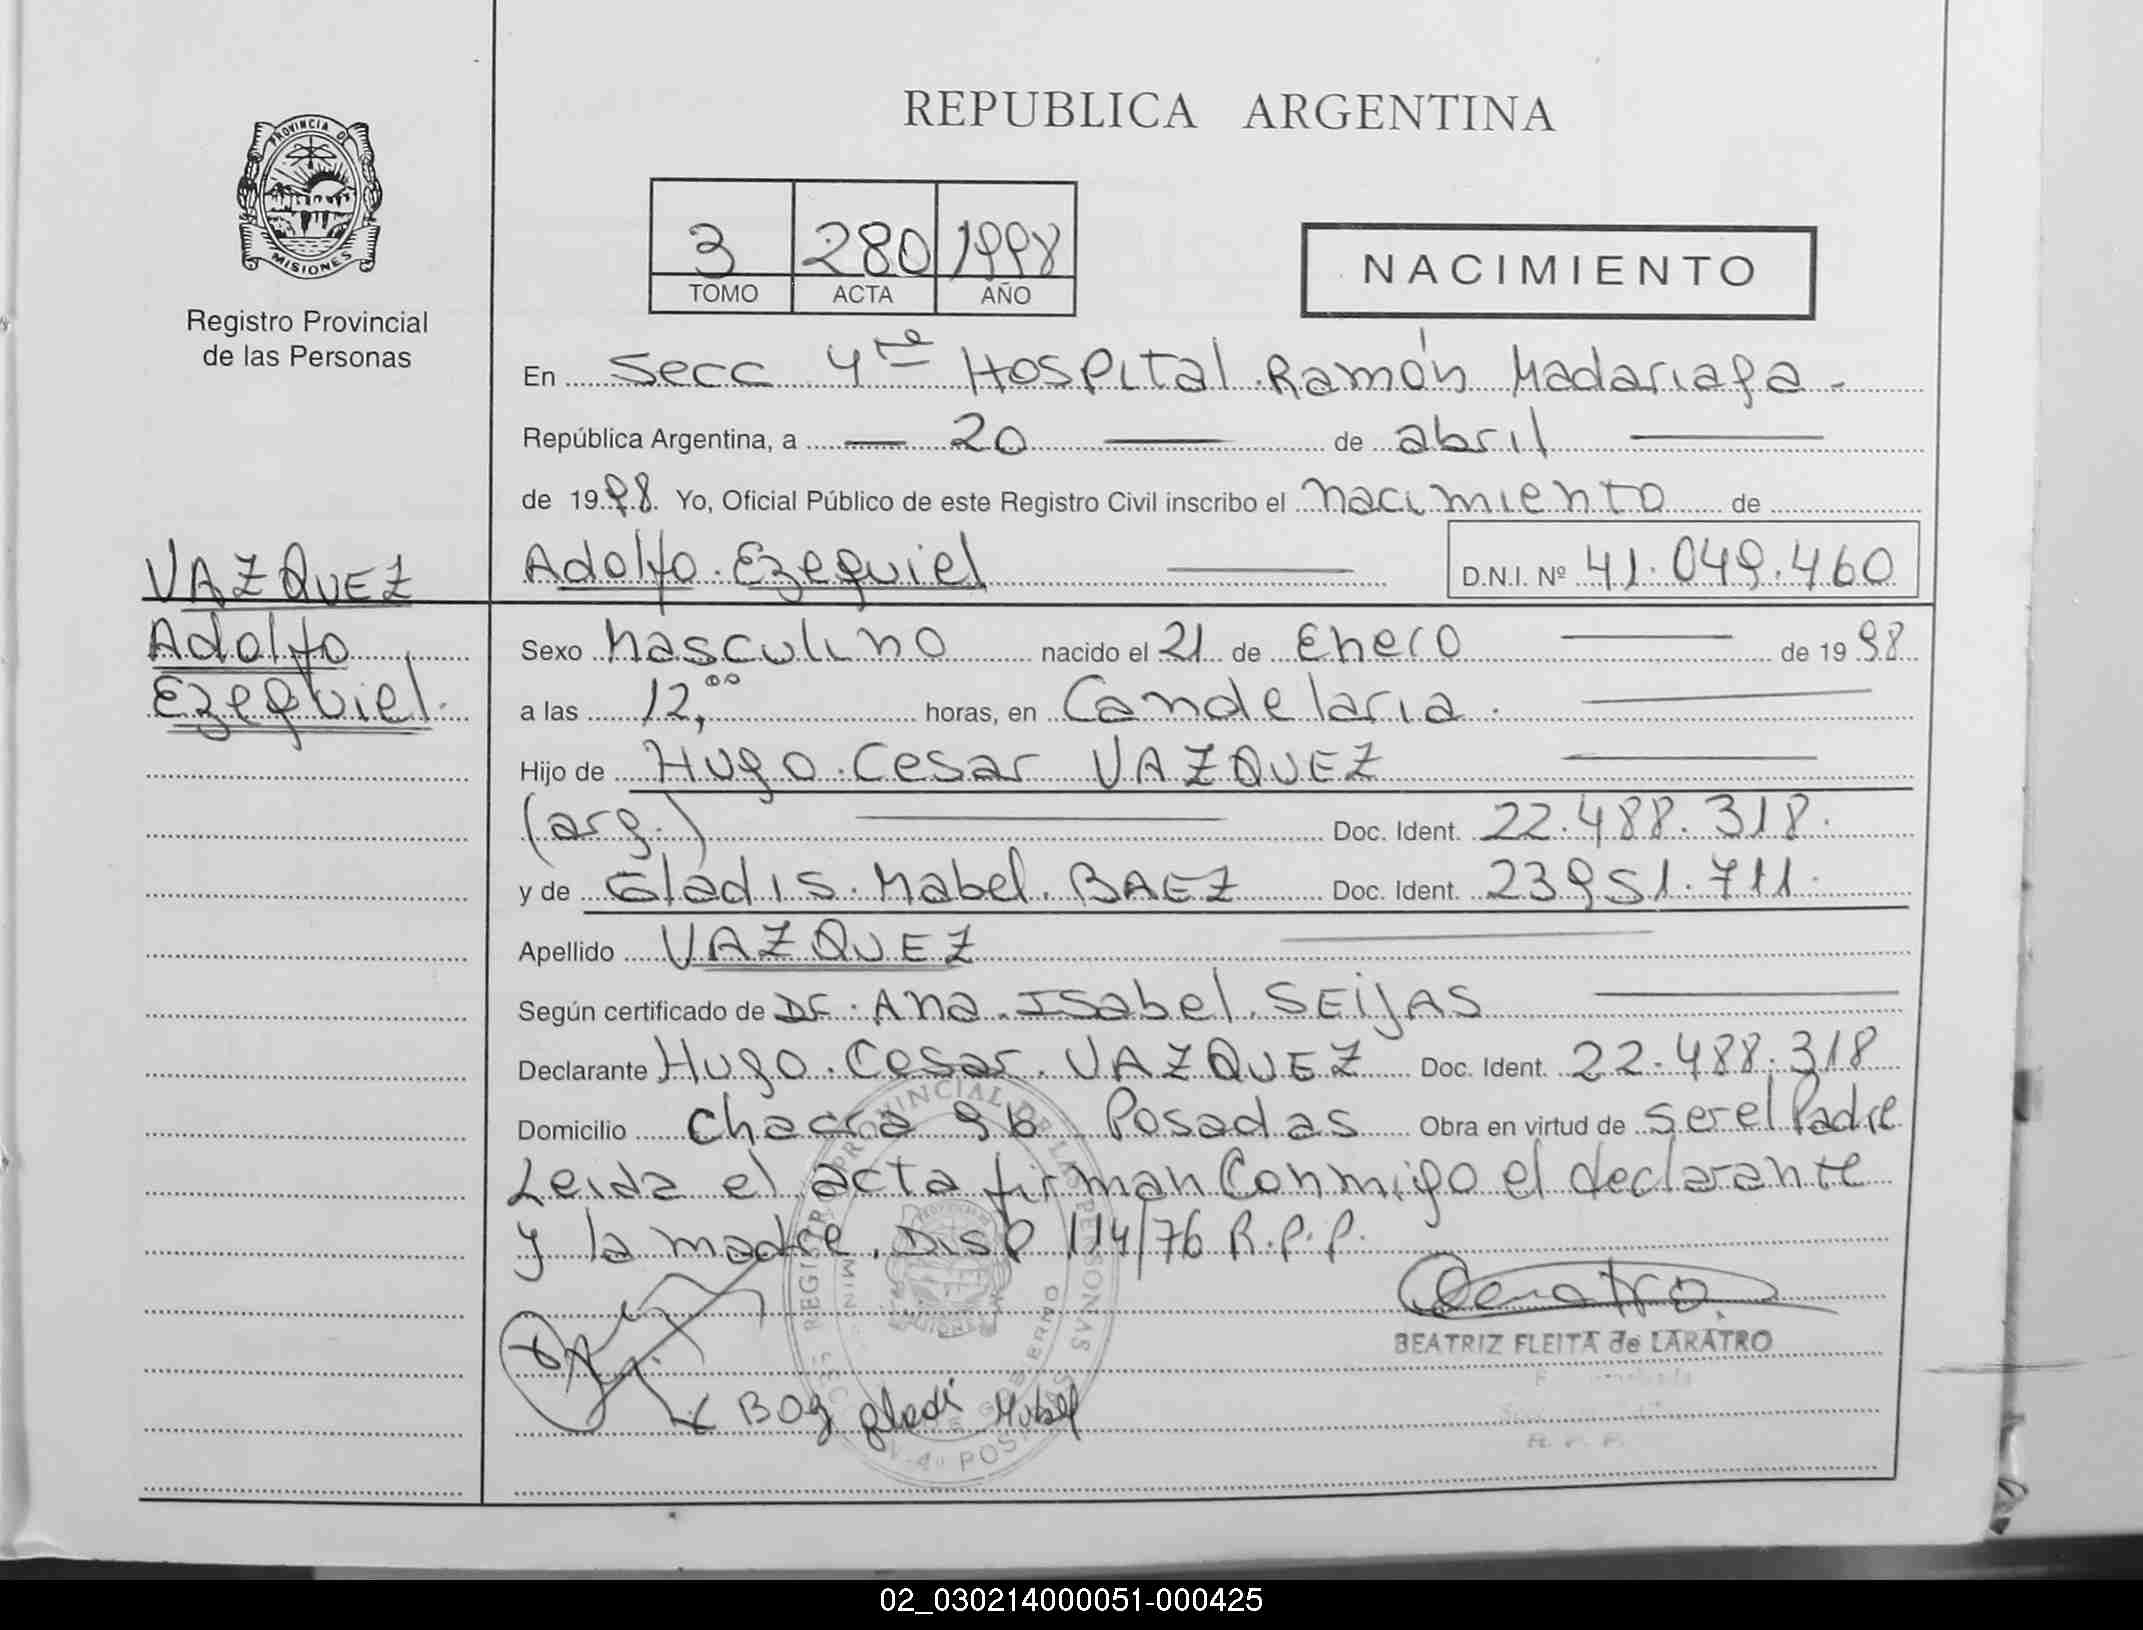 REPUBLICA ARGENTINA
PROVINCIA DE
MISIONES
Registro Provincial
de las Personas
3 280 1998
TOMO ACTA AÑO
NACIMIENTO
En Secc 4ta Hospital Ramón Madariaga -
República Argentina, a — 20 — de abril —
de 1998. Yo, Oficial Público de este Registro Civil inscribo el nacimiento de
VAZQUEZ
Adolfo
Ezequiel.
Adolfo Ezequiel — D.N.I. Nº 41.049.460
Sexo Masculino nacido el 21 de Enero — de 1998
a las 12,00 horas, en Candelaria. —
Hijo de Hugo Cesar VAZQUEZ —
(arg.) — Doc. Ident. 22.488.318.
y de Gladis Mabel BAEZ Doc. Ident. 23951.711.
Apellido VAZQUEZ —
Según certificado de Dr. Ana Isabel SEIJAS —
Declarante Hugo Cesar VAZQUEZ Doc. Ident. 22.488.318
Domicilio chacra 96 Posadas Obra en virtud de ser el Padre
Leida el acta firman Conmigo el declarante
y la madre. Disp 114/76 R.P.P.
REGISTRO PROVINCIAL DE LAS PERSONAS
BEATRIZ FLEITA de LARATRO
R. P. P.
02_030214000051-000425